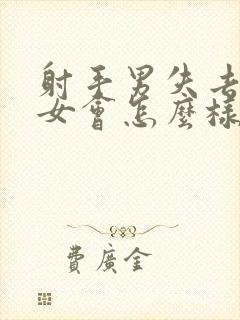 射手男失去
女會怎麼樣
費廣全